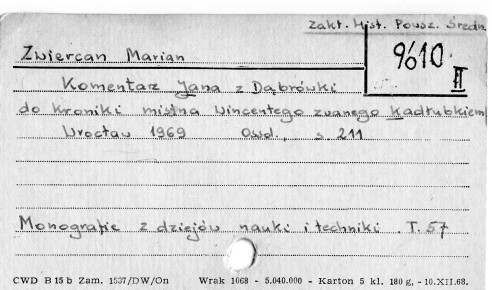 Zakł. Hist. Powsz. Średn.
9610
II
Zwiercan Marian
Komentarz Jana z Dąbrówki
do Kroniki mistrza Wincentego zwanego Kadłubkiem
Wrocław 1969 Ossol., s. 211
Monografie z dziejów nauki i techniki. T. 57
CWD B 15 b Zam. 1537/DW/On Wrak 1068 - 5.040.000 - Karton 5 kl. 180 g. - 10.XII.68.